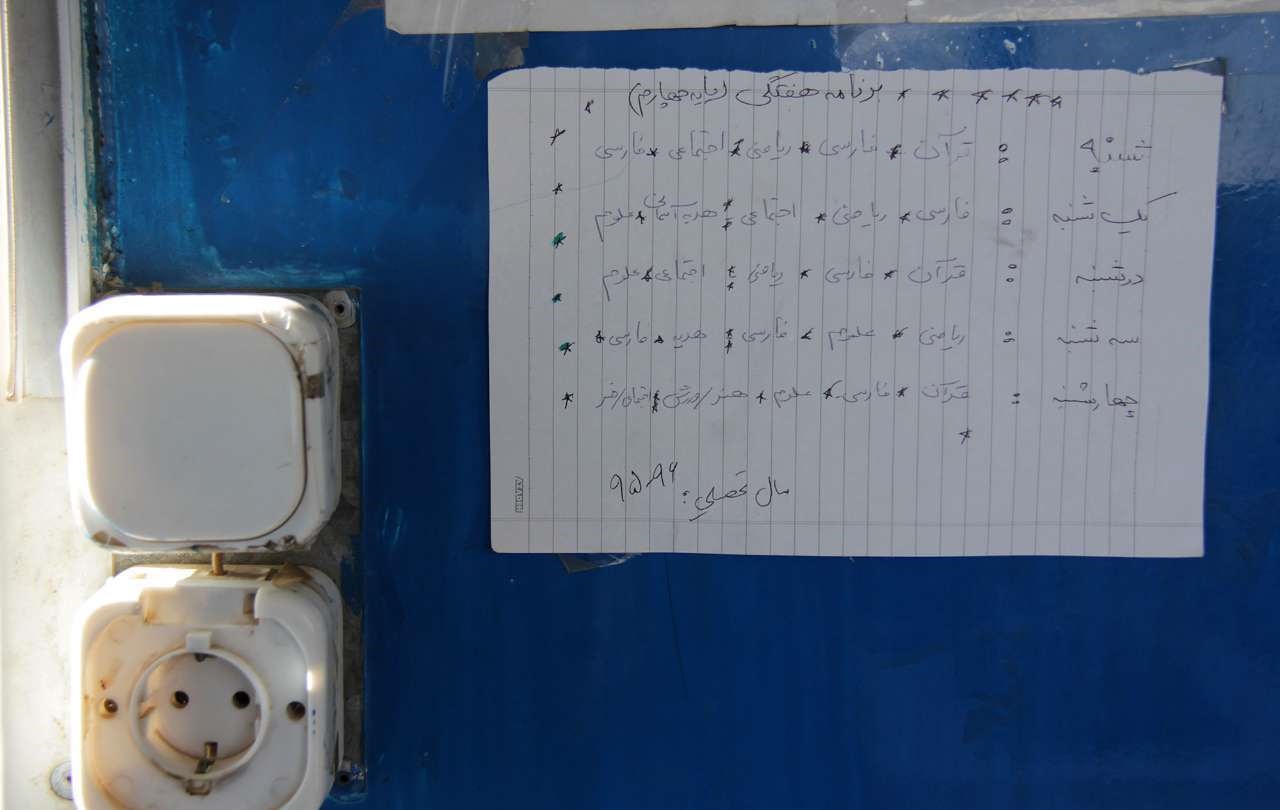 برنامه هفتگی (پایه چهارم)
شنبه : قرآن * فارسی * ریاضی * اجتماعی * فارسی
یک شنبه : فارسی * ریاضی * اجتماعی * هدیه آسمانی * علوم
دوشنبه : قرآن * فارسی * ریاضی * اجتماعی * علوم
سه شنبه : ریاضی * علوم * فارسی * هدیه * فارسی *
چهارشنبه : قرآن * فارسی * علوم * هنر/ورزش *
سال تحصیلی : ۹۶-۹۵